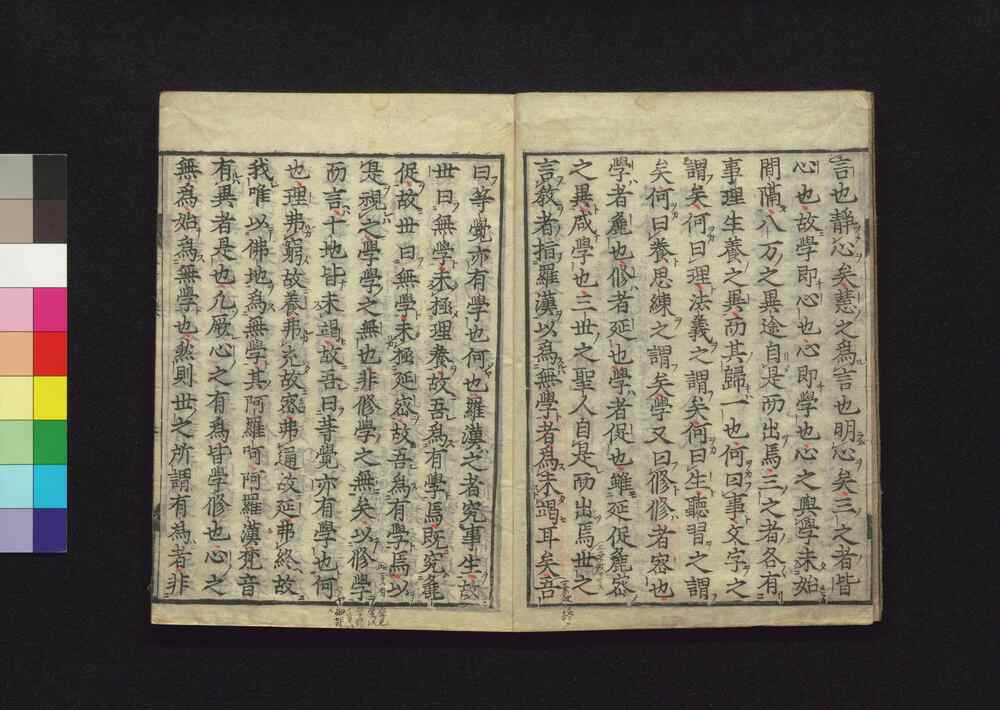 言也靜心矣慧之為言也明心矣三之者皆
心也故學即心也心即學也心之與學未始
間隔八万之異途自是而出焉三之者各有
事理生養之異而其歸一也何曰事文字之
謂矣何曰理法義之謂矣何曰生聽習之謂
矣何曰養思練之謂矣學又曰修修者密也
學者麁也修者延也學者促也雖延促麁密
之異咸學也三世之聖人自是而出焉世之
言教者指羅漢以為無學者為未竭耳矣吾
曰等覺亦有學也何也羅漢之者究事生故
世曰無學未極理養故吾為有學焉既究麁
促故世曰無學未極延密故吾為有學焉以
是視之學學之無也非修學之無矣以修學
而言十地皆未竭故吾曰等覺亦有學也何
也理弗窮故養弗充故密弗逼故延弗終故
我唯以佛地為無學其阿羅呵阿羅漢梵音
有異者是也凡厥心之有為皆學修也心之
無為始為無學也然則世之所謂有為者非